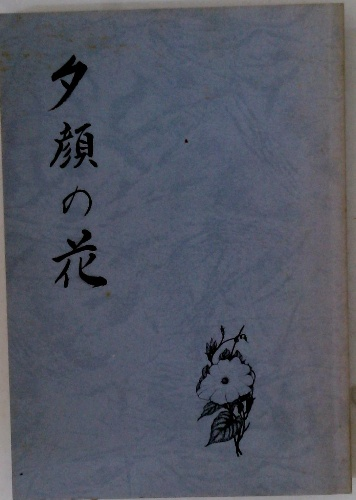 夕顔の花